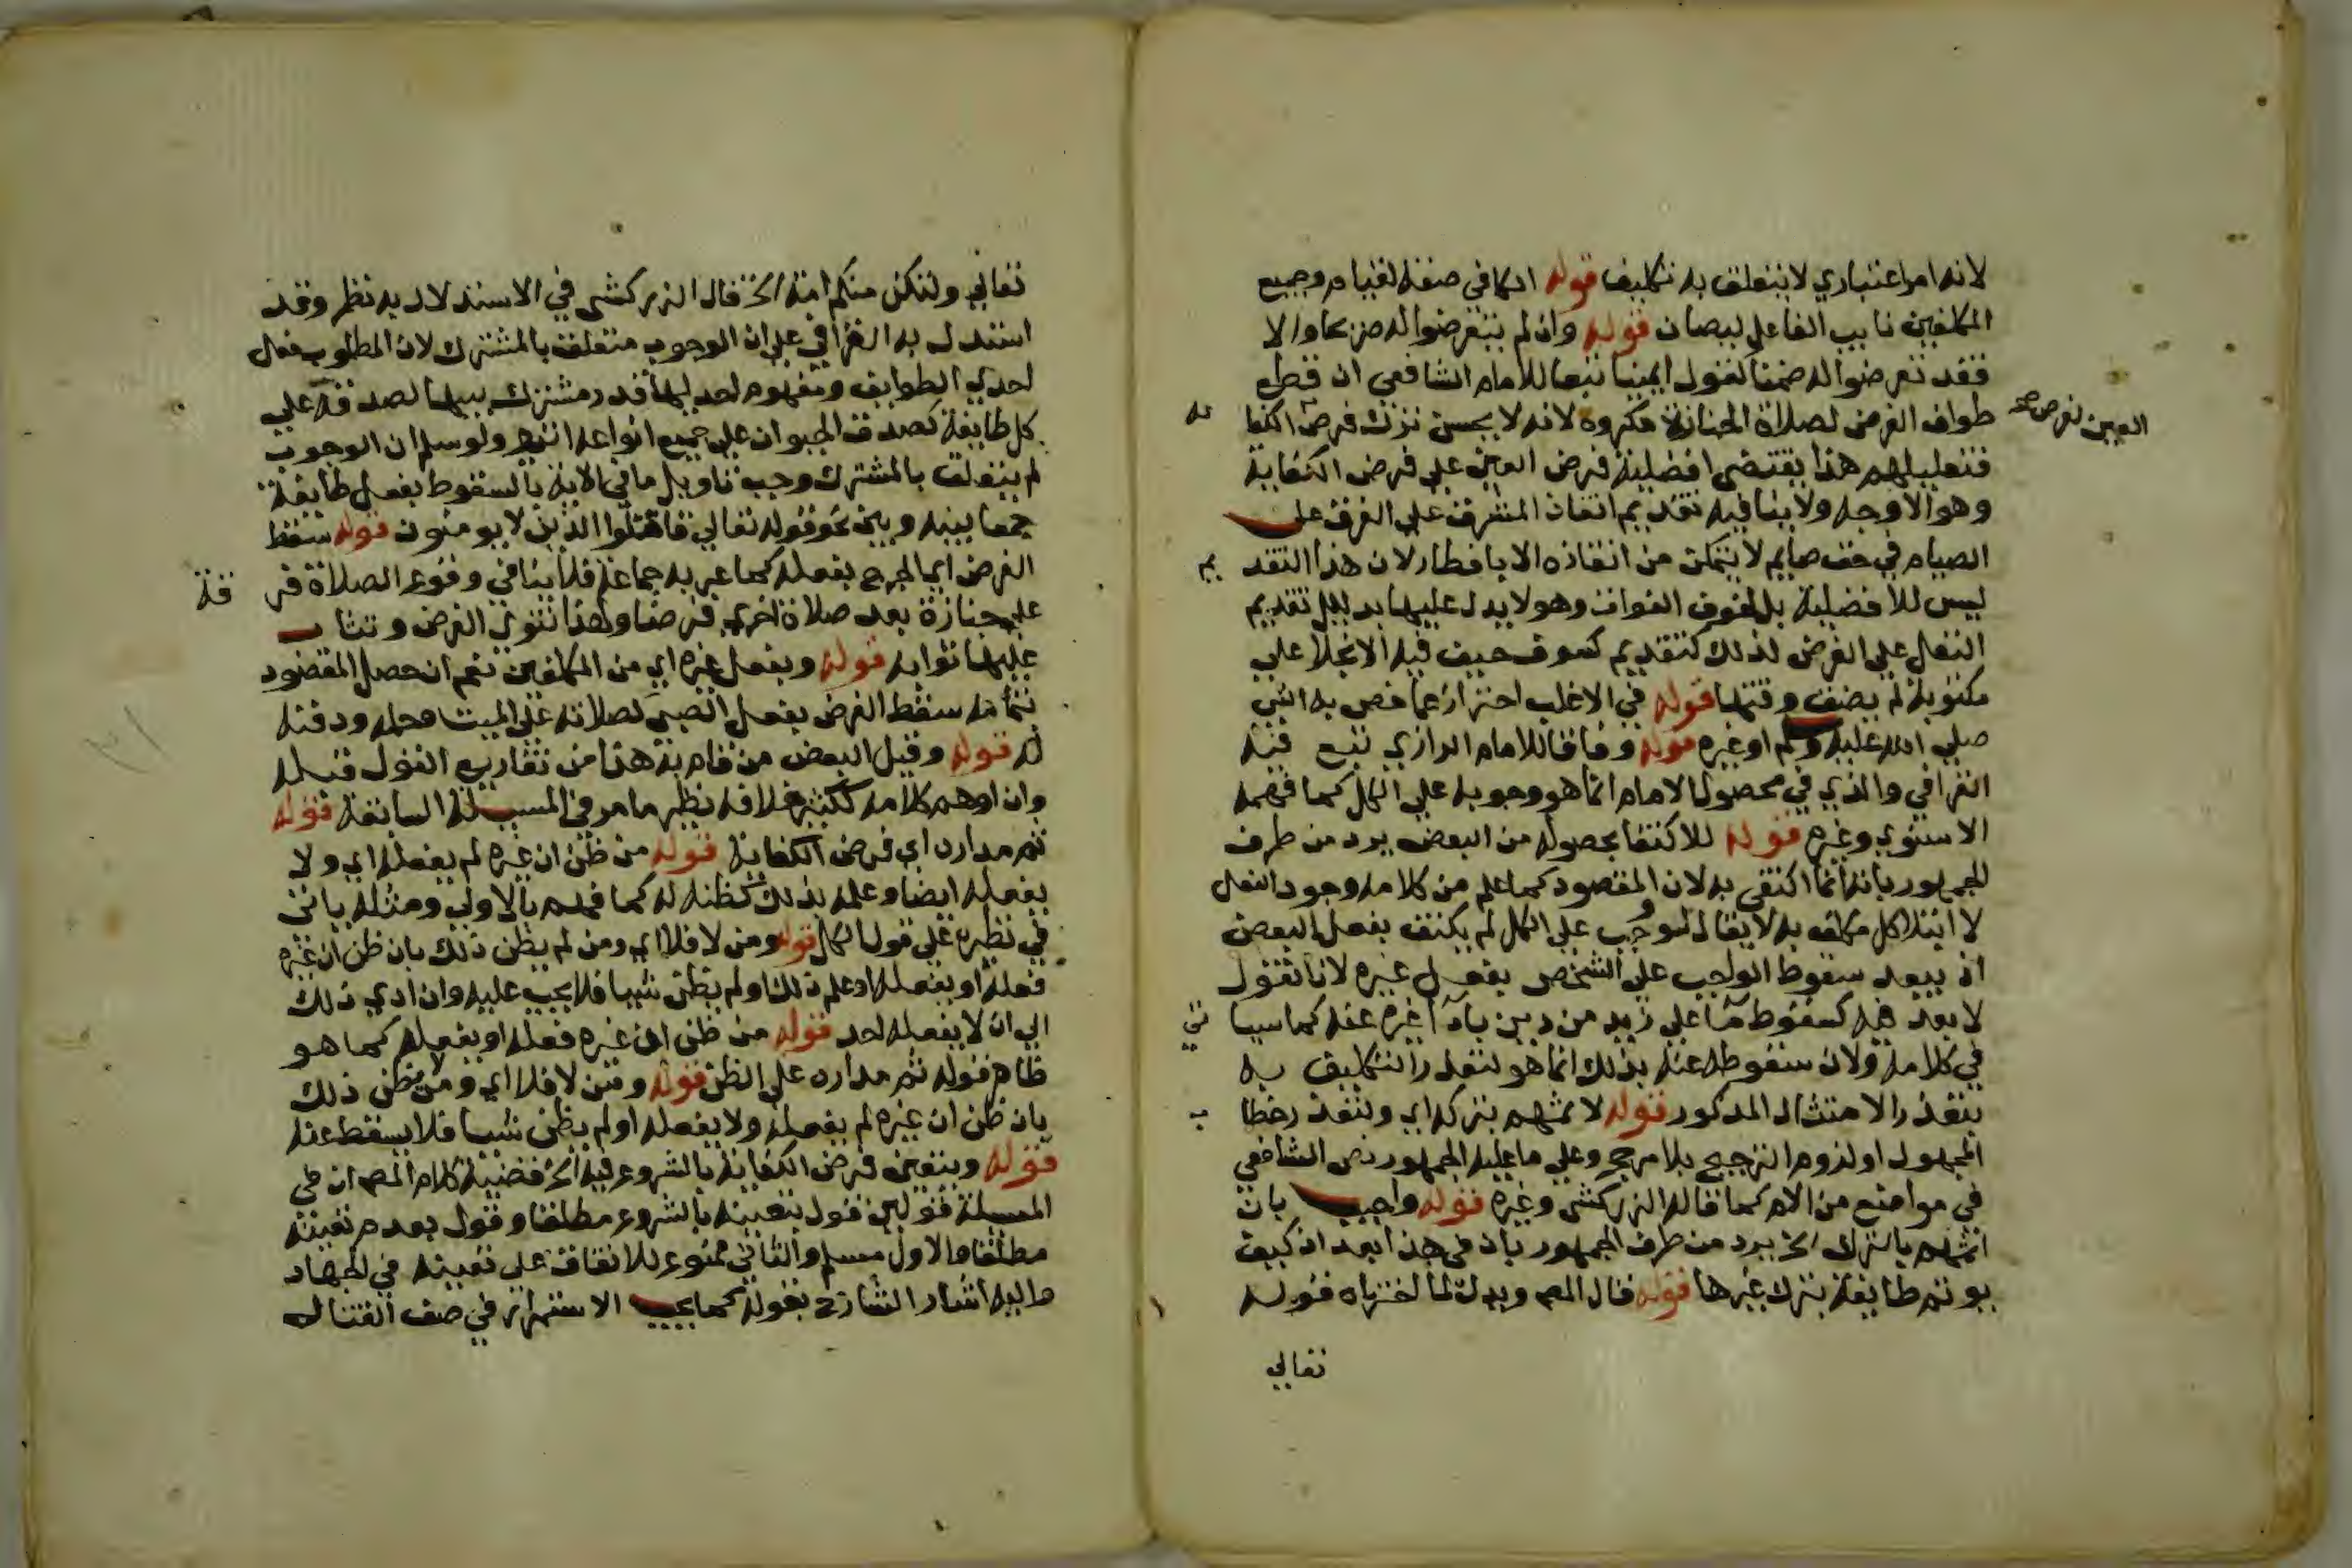 لانه امر اعتباري لا يتعلق به تكليف قوله الكافي صفة لقيام وجميع
المكلفين نايب الفاعل ليصان قوله وان لم يتعرضوا له صريحا والا
فقد تعرضوا له ضمنا كقول ايمتنا تبعا للامام الشافعي ان قطع
طواف الفرض لصلاة الجنازة مكروه لانه لا يحسن ترك فرض الكفا ية
العين لفرض صح
فتعليلهم هذا يقتضي افضلية فرض العين علي فرض الكفاية
وهو الاوجه ولا ينافيه تقديم انقاذ المشرف علي الغرق علي
الصيام في حق صايم لا يتمكن من انقاذه الا بافطار لان هذا التقد يم
ليس للافضلية بل لخوف الفوات وهو لا يدل عليها بدليل تقديم
النفل علي الفرض لذلك كتقديم كسوف خيف فيه الانجلا علي
مكتوبة لم يضق وقتها قوله في الاغلب احتراز عما خص به النبي
صلي الله عليه وسلم او غيره قوله وفاقا للامام الرازي تبع فيه
القرافي والذي في محصول الامام انما هو وجوبه علي الكل كما فهمه
الاسنوي وغيره قوله للاكتفا بحصوله من البعض يرد من طرف
الجمهور بانه انما اكتفي به لان المقصود كما علم من كلامه وجود الفعل
لا ابتلا كل مكلف به لا يقال لو وجب علي الكل لم يكتف بفعل البعض
اذ يبعد سقوط الواجب علي الشخص بفعل غيره لانا نقول
لا بعد فيه كسقوط ما علي زيد من دين باداء غيره عنه كما سيا تي
في كلامه ولان سقوطه عنه بذلك انما هو لتعذر التكليف به
بتعذر الامتثال المذكور قوله لاثمهم بتركه اي ولتعذر خطا ب
المجهول او لزوم الترجيح بلا مرجح وعلي ما عليه الجمهور نص الشافعي
في مواضع من الام كما قاله الزركشي وغيره قوله واجيب بان
اثمهم بالترك الخ يرد من طرف الجمهور بان في هذا بعد اذ كيف
يوثم طايفة بترك غيرها قوله قال المص ويدل لما اخترناه قوله
تعالي
تعالي ولتكن منكم امة الخ قال الزركشي في الاستدلال به نظر وقد
استدل به القرافي علي ان الوجوب متعلق بالمشترك لان المطلوب فعل
احدي الطوايف ومفهوم احديها قدر مشترك بينها لصدقه علي
كل طايفة كصدق الحيوان علي جميع انواعه انتهي ولو سلم ان الوجوب
لم يتعلق بالمشترك وجب تاويل ما في الاية بالسقوط بفعل طايفة
جمعا بينه وبين نحو قوله تعالي قاتلوا الذين لا يومنون قوله سقط
الفرض اي الحرج بفعله كما عبر به جماعة فلا ينافي وقوع الصلاة فر قة
علي جنازة بعد صلاة اخري فرضا ولهذا تنوي الفرض وتثاب
عليها ثوابه قوله وبفعل غيره اي من المكلفين نعم ان حصل المقصود
بتمامه سقط الفرض بفعل الصبي كصلاته علي الميت وحمله ودفنه
له قوله وقيل البعض من قام به هذا من تفاريع القول قبله
وان اوهم كلامه ككثير خلافه نظير ما مر في المسيلة السابقة قوله
ثم مداره اي فرض الكفاية قوله من ظن ان غيره لم يفعله اي ولا
يفعله ايضا وعلمه بذلك كظنه له كما فهم بالاولي ومثله ياتي
في نظيره علي قول الكل قوله ومن لا فلا اي ومن لم يظن ذلك بان ظن ان غيره
فعله او يفعله او علم ذلك او لم يظن شيا فلا يجب عليه وان ادي ذلك
الي ان لا يفعله احد قوله من ظن ان غيره فعله او يفعله كما هو
ظاهر قوله ثم مداره علي الظن قوله ومن لا فلا اي ومن لا يظن ذلك
بان ظن ان غيره لم يفعله ولا يفعله او لم يظن شيا فلا يسقط عنه
قوله ويتعين فرض الكفاية بالشروع فيه الخ قضية كلام المص ان في
المسيلة قولين قول بتعينه بالشروع مطلقا وقول بعدم تعينه
مطلقا والاول مسلم والثاني ممنوع للاتفاق علي تعينه في الجهاد
واليه اشار الشارح بقوله كما يجب الاستمرار في صف القتال